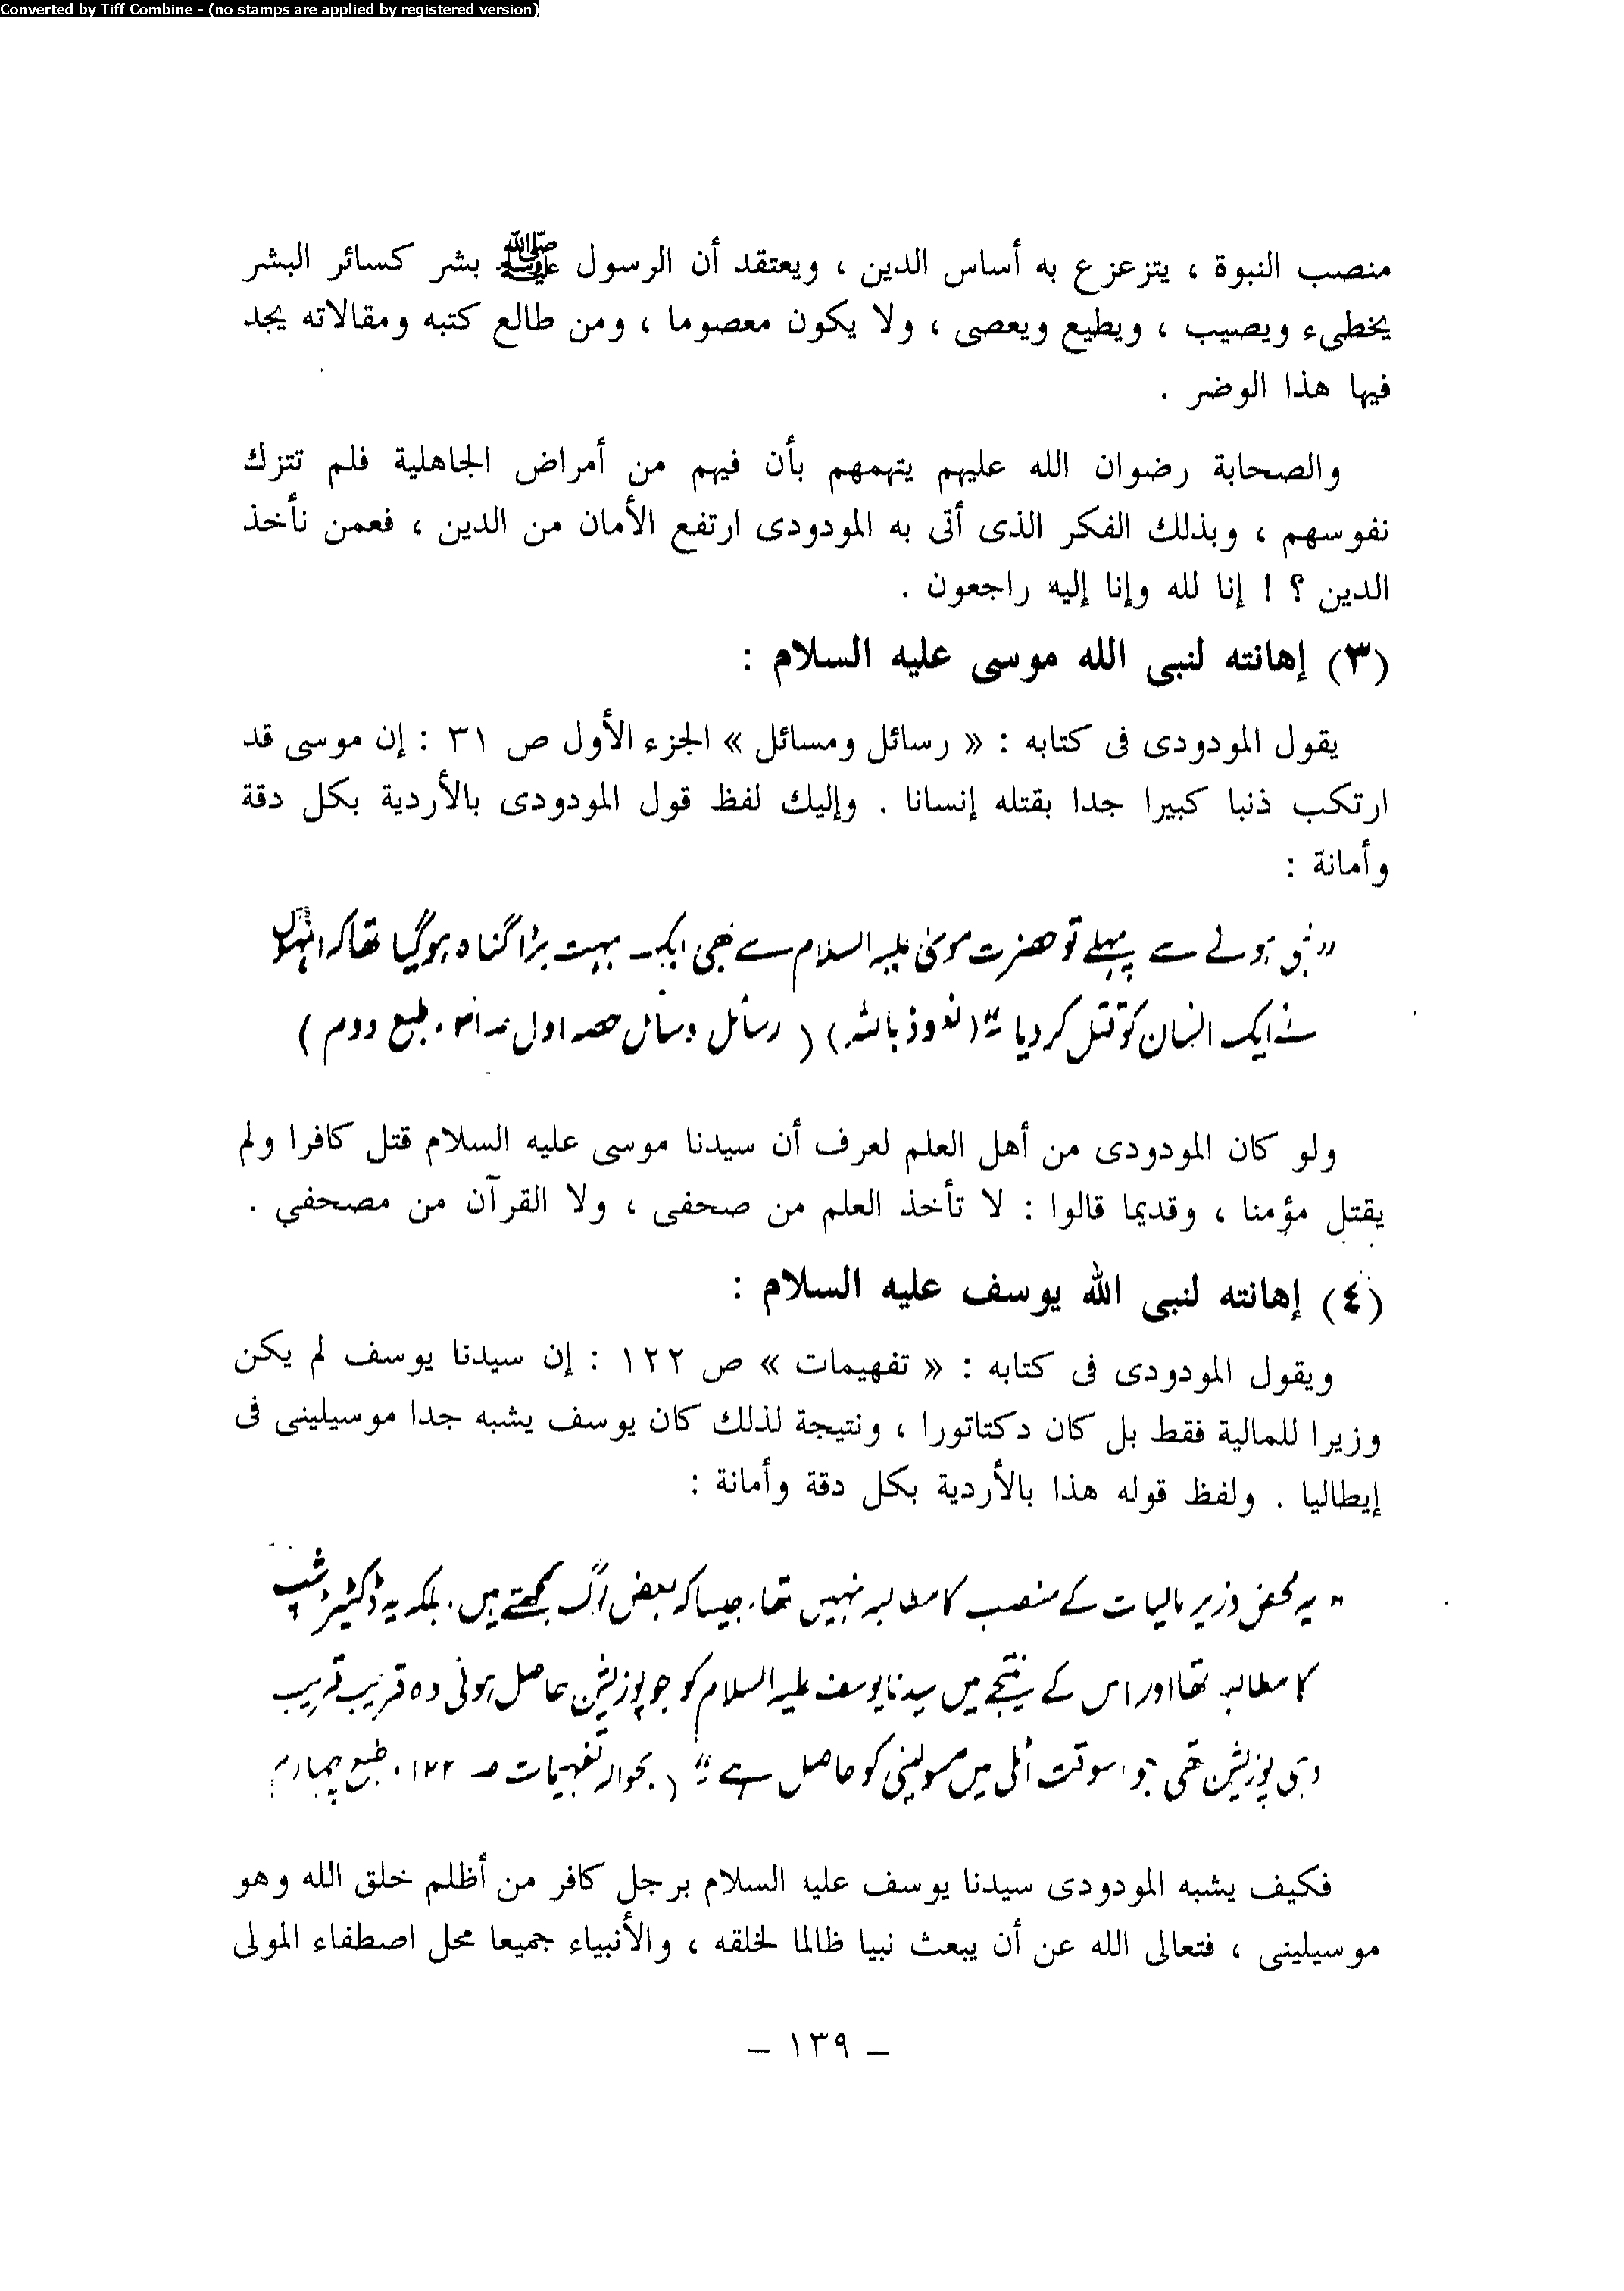 Converted by Tiff Combine - (no stamps are applied by registered version)
منصب النبوة ، يتزعزع به أساس الدين ، ويعتقد أن الرسول ﷺ بشر كسائر البشر
يخطىء ويصيب ، ويطيع ويعصى ، ولا يكون معصوما ، ومن طالع كتبه ومقالاته يجد
فيها هذا الوضر .
والصحابة رضوان الله عليهم يتهمهم بأن فيهم من أمراض الجاهلية فلم تتزك
نفوسهم ، وبذلك الفكر الذى أتى به المودودى ارتفع الأمان من الدين ، فعمن نأخذ
الدين ؟ ! إنا لله وإنا إليه راجعون .
(٣) إهانته لنبى الله موسى عليه السلام :
يقول المودودى فى كتابه : « رسائل ومسائل » الجزء الأول ص ٣١ : إن موسى قد
ارتكب ذنبا كبيرا جدا بقتله إنسانا . وإليك لفظ قول المودودى بالأردية بكل دقة
وأمانة :
" نبی ہونے سے پہلے تو حضرت موسیٰ علیہ السلام سے بھی ایک بہت بڑا گناہ ہوگیا تھا کہ انہوں
نے ایک انسان کو قتل کردیا " (نعوذ باللہ) ( رسائل و مسائل حصہ اول ص ۳۱، طبع دوم )
ولو كان المودودى من أهل العلم لعرف أن سيدنا موسى عليه السلام قتل كافرا ولم
يقتل مؤمنا ، وقديما قالوا : لا تأخذ العلم من صحفى ، ولا القرآن من مصحفي .
(٤) إهانته لنبى الله يوسف عليه السلام :
ويقول المودودى فى كتابه : « تفهيمات » ص ١٢٢ : إن سيدنا يوسف لم يكن
وزيرا للمالية فقط بل كان دكتاتورا ، ونتيجة لذلك كان يوسف يشبه جدا موسيلينى فى
إيطاليا . ولفظ قوله هذا بالأردية بكل دقة وأمانة :
" یہ محض وزیر مالیات کے منصب کا مطالبہ نہیں تھا، جیسا کہ بعض لوگ سمجھتے ہیں، بلکہ یہ ڈکٹیٹر شپ
کا مطالبہ تھا اور اس کے نتیجے میں سیدنا یوسف علیہ السلام کو جو پوزیشن حاصل ہوئی وہ قریب قریب
وہی پوزیشن تھی جو اسوقت اٹلی میں مسولینی کو حاصل ہے " ( بحوالہ تفہیمات ص ۱۲۲، طبع چہارم )
فكيف يشبه المودودى سيدنا يوسف عليه السلام برجل كافر من أظلم خلق الله وهو
موسيلينى ، فتعالى الله عن أن يبعث نبيا ظالما لخلقه ، والأنبياء جميعا محل اصطفاء المولى
– ١٣٩ –